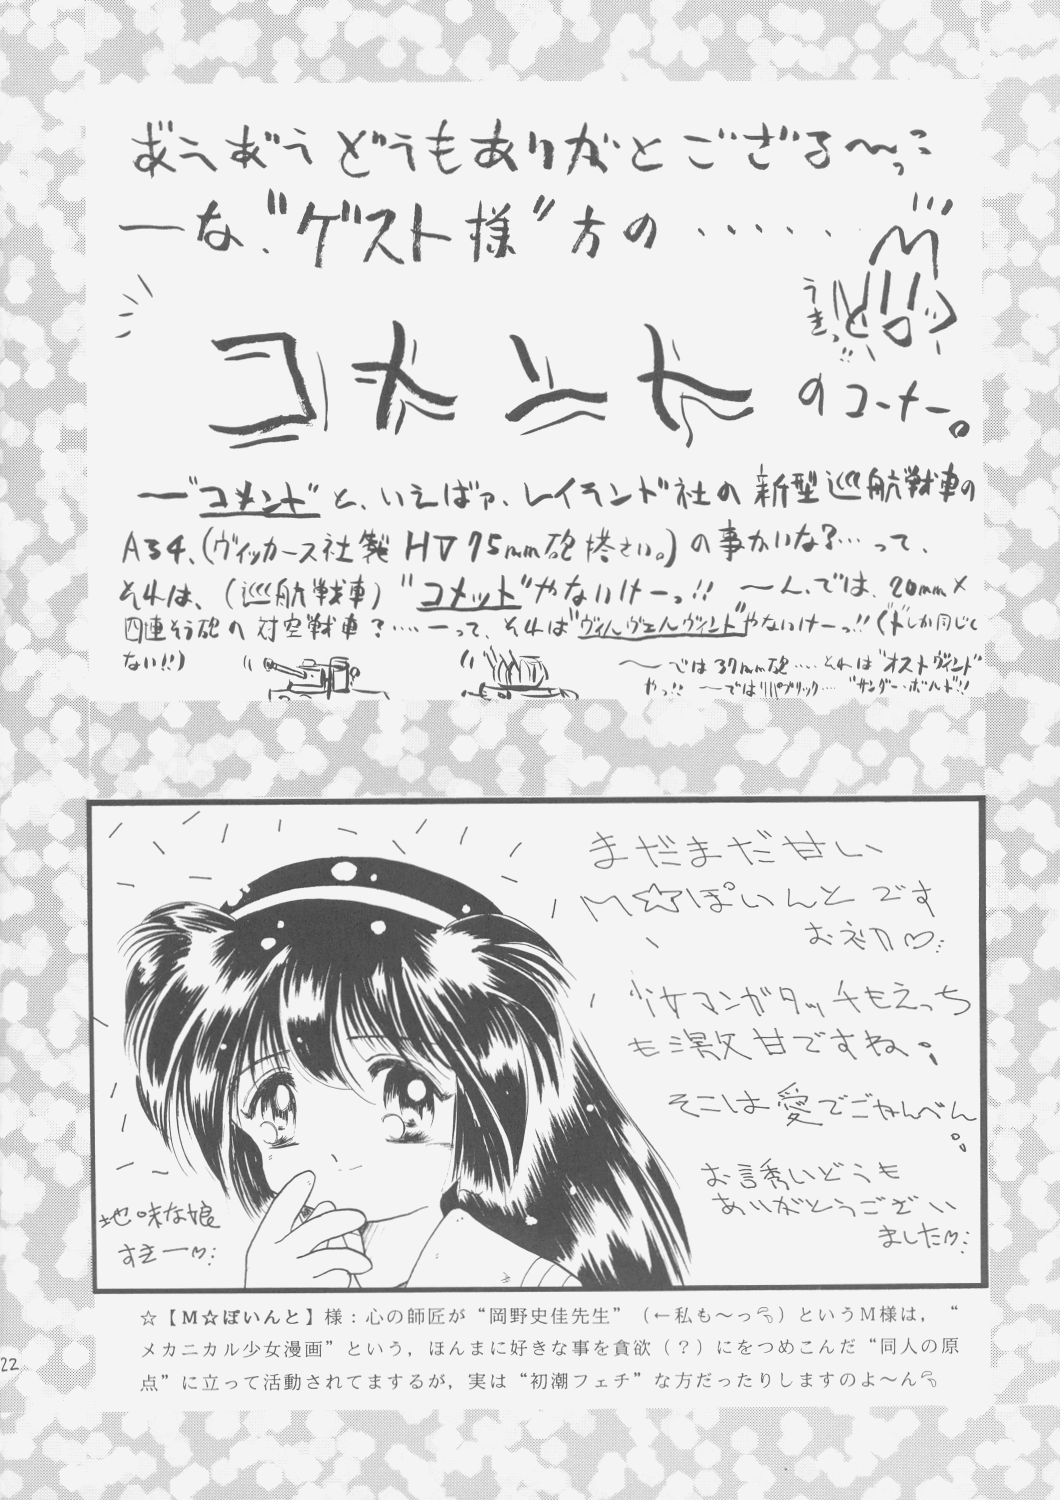 どうもありがとございざる〜っ
ーな、"ゲスト様"方の・・・・・
うきっ
コメント
のコーナー。
ー"コメント"と、いえばァ、レイランド社の新型巡航戦車の
A34、(ヴィッカース社製 HV 75mm砲搭さい。)の事かいな?…って、
それは、(巡航戦車)"コメット"やないけーっ!! 〜ん、では、20mm×
四連そう砲の対空戦車?…ーって、それは"ヴィルヴェルヴィント"やないけーっ!!(ドしか同じく
ない!!)
〜では37mm砲……それは"オストヴィント"
やっ!! 〜ではリパブリック… "サンダーボルト"!!
まだまだ甘い
M☆ぽいんとです
お初♡
少女マンガタッチもえっち
も激甘ですね。
そこは愛でごかんべん
お誘いどうも
ありがとうござい
ました♡
地味な娘
すきー♡
☆【M☆ぽいんと】様：心の師匠が“岡野史佳先生”（←私も〜っ）というM様は，“
メカニカル少女漫画”という，ほんまに好きな事を貪欲（？）にをつめこんだ“同人の原
点”に立って活動されてまするが，実は“初潮フェチ”な方だったりしますのよ〜ん
22